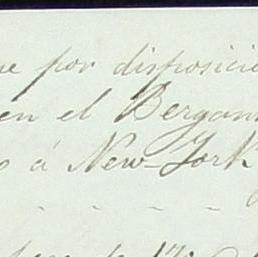 ue por disposició
en el Bergan
o á New-York